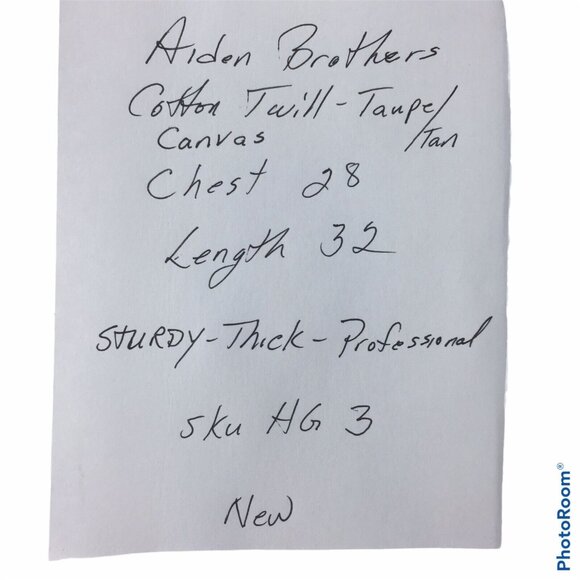 Aiden Brothers
Cotton Twill - Taupe/
Canvas /Tan
Chest 28
Length 32
STURDY - Thick - Professional
sku HG 3
New
PhotoRoom®